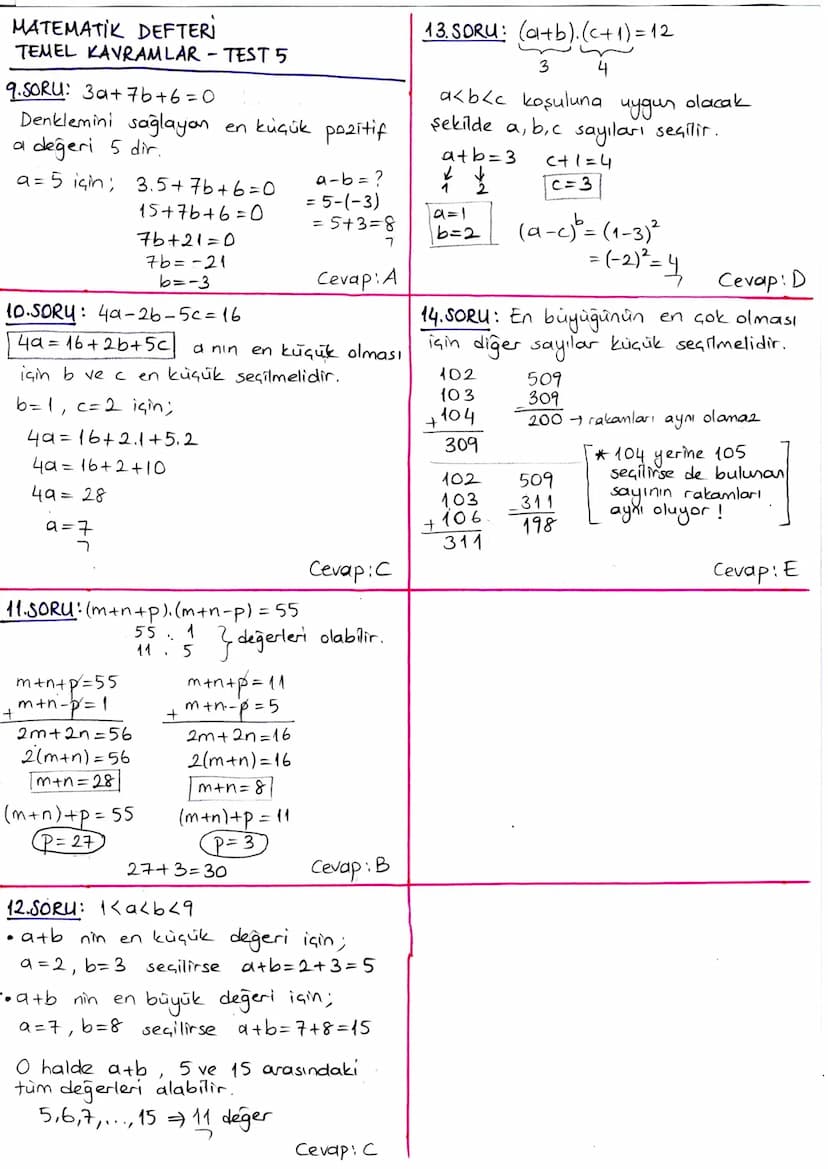 MATEMATİK DEFTERİ
TEMEL KAVRAMLAR - TEST 5
9.SORU: 3a+7b+6=0
Denklemini sağlayan en küçük pozitif
a değeri 5 dir.
a=5 için; 3.5+7b+6=0
15+7b+6=0
7b+21=0
7b=-21
b=-3
a-b=?
=5-(-3)
=5+3=8
Cevap:A
10.SORU: 4a-2b-5c=16
4a=16+2b+5c a nın en küçük olması
için b ve c en küçük seçilmelidir.
b=1, c=2 için;
4a=16+2.1+5.2
4a=16+2+10
4a=28
a=7
Cevap:C
11.SORU:(m+n+p).(m+n-p)=55
55 . 1
11 . 5 } değerleri olabilir.
m+n+p=55
+ m+n-p=1
2m+2n=56
2(m+n)=56
m+n=28
(m+n)+p=55
p=27
m+n+p=11
+ m+n-p=5
2m+2n=16
2(m+n)=16
m+n=8
(m+n)+p=11
p=3
27+3=30
Cevap:B
12.SORU: 1<a<b<9
• a+b nin en küçük değeri için;
a=2, b=3 seçilirse a+b=2+3=5
• a+b nin en büyük değeri için;
a=7, b=8 seçilirse a+b=7+8=15
O halde a+b, 5 ve 15 arasındaki
tüm değerleri alabilir.
5,6,7,...,15 ⇒ 11 değer
Cevap:C
13.SORU: (a+b).(c+1)=12
3 4
a<b<c koşuluna uygun olacak
şekilde a,b,c sayıları seçilir.
a+b=3 c+1=4
↓ ↓
1 2 c=3
a=1
b=2
(a-c)^b=(1-3)²
=(-2)²=4
Cevap:D
14.SORU: En büyüğünün en çok olması
için diğer sayılar küçük seçilmelidir.
102
103
+104
309
509
-309
200 → rakamları aynı olamaz
102
103
+106
311
509
-311
198
* 104 yerine 105
seçilirse de bulunan
sayının rakamları
aynı oluyor!
Cevap:E